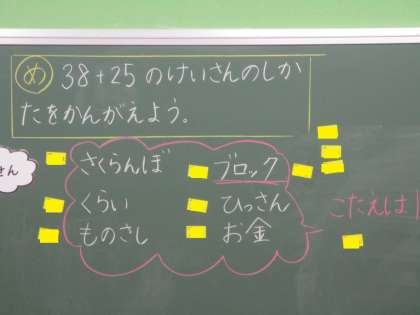 め 38+25のけいさんのしか
たをかんがえよう。
せん
さくらんぼ ブロック
くらい ひっさん
ものさし お金
こたえは